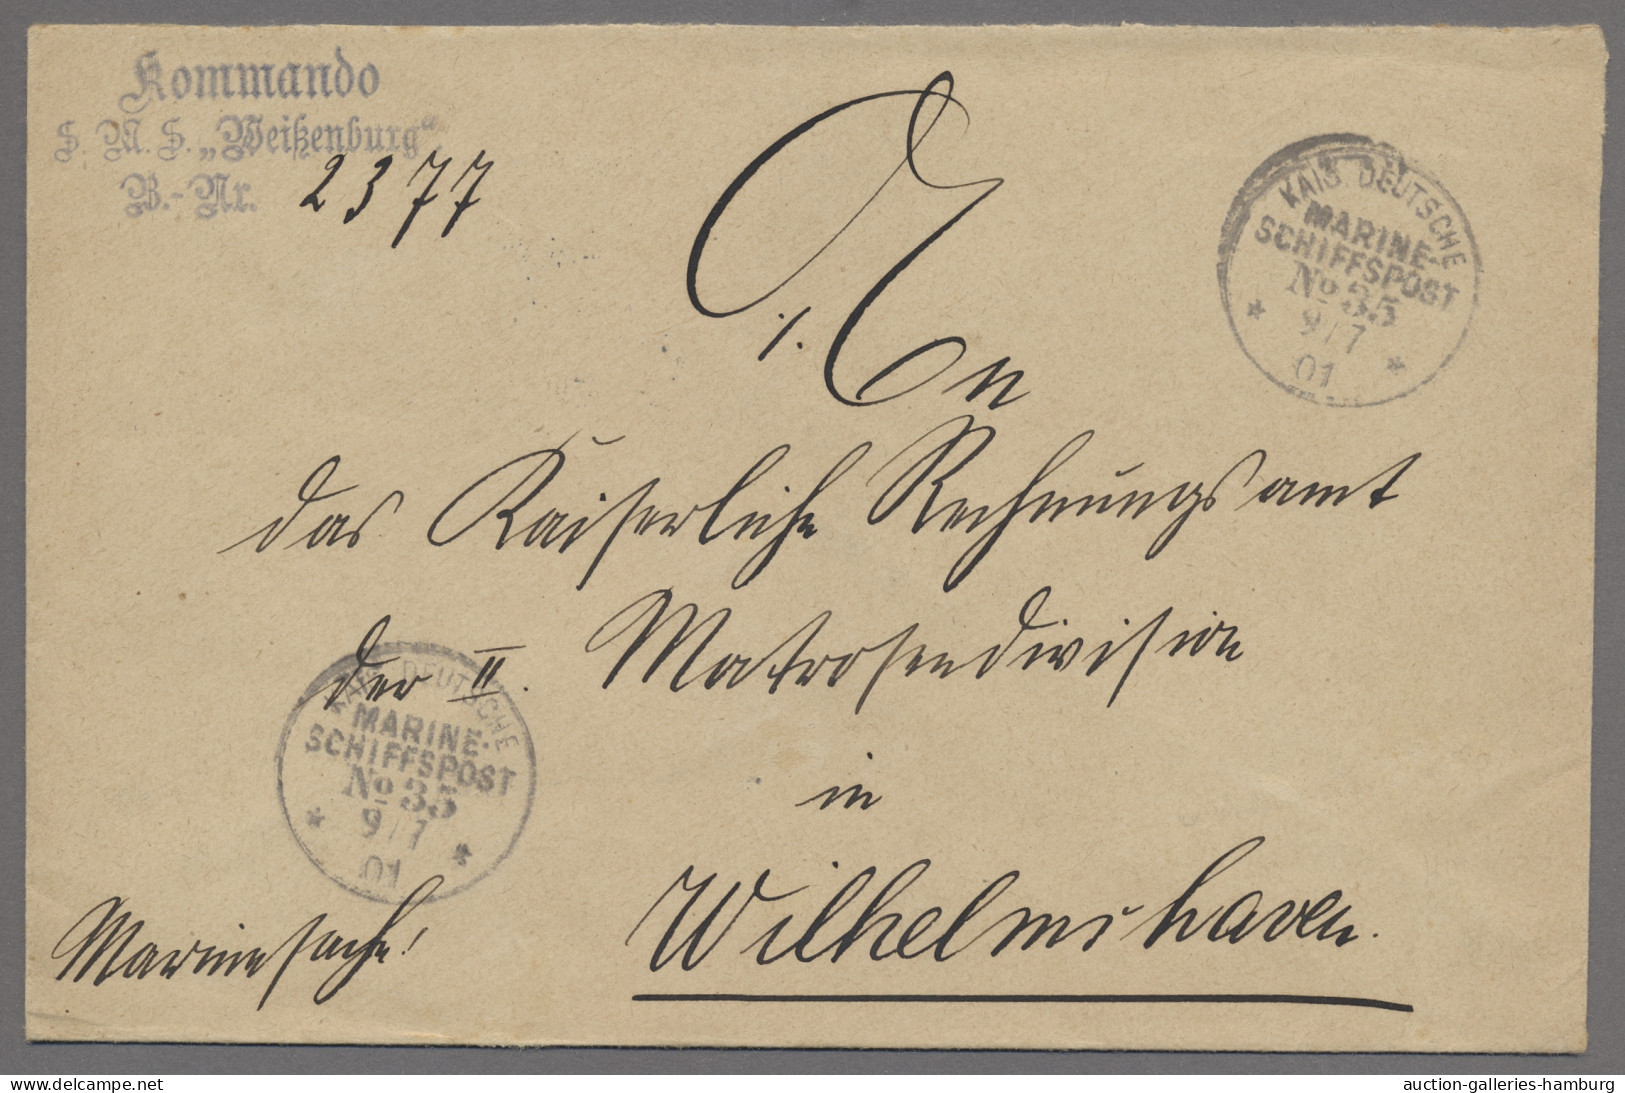 Kommando
S. M. S. „Weißenburg“.
B.-Nr. 2377
KAIS. DEUTSCHE
MARINE-
SCHIFFSPOST
No 35
9/7
01
An
das Kaiserliche Rechnungsamt
der II. Matrosendivision
in
Wilhelmshaven.
KAIS. DEUTSCHE
MARINE-
SCHIFFSPOST
No 35
9/7
01
Marinesache!
auction-galleries-hamburg
delcampe.net